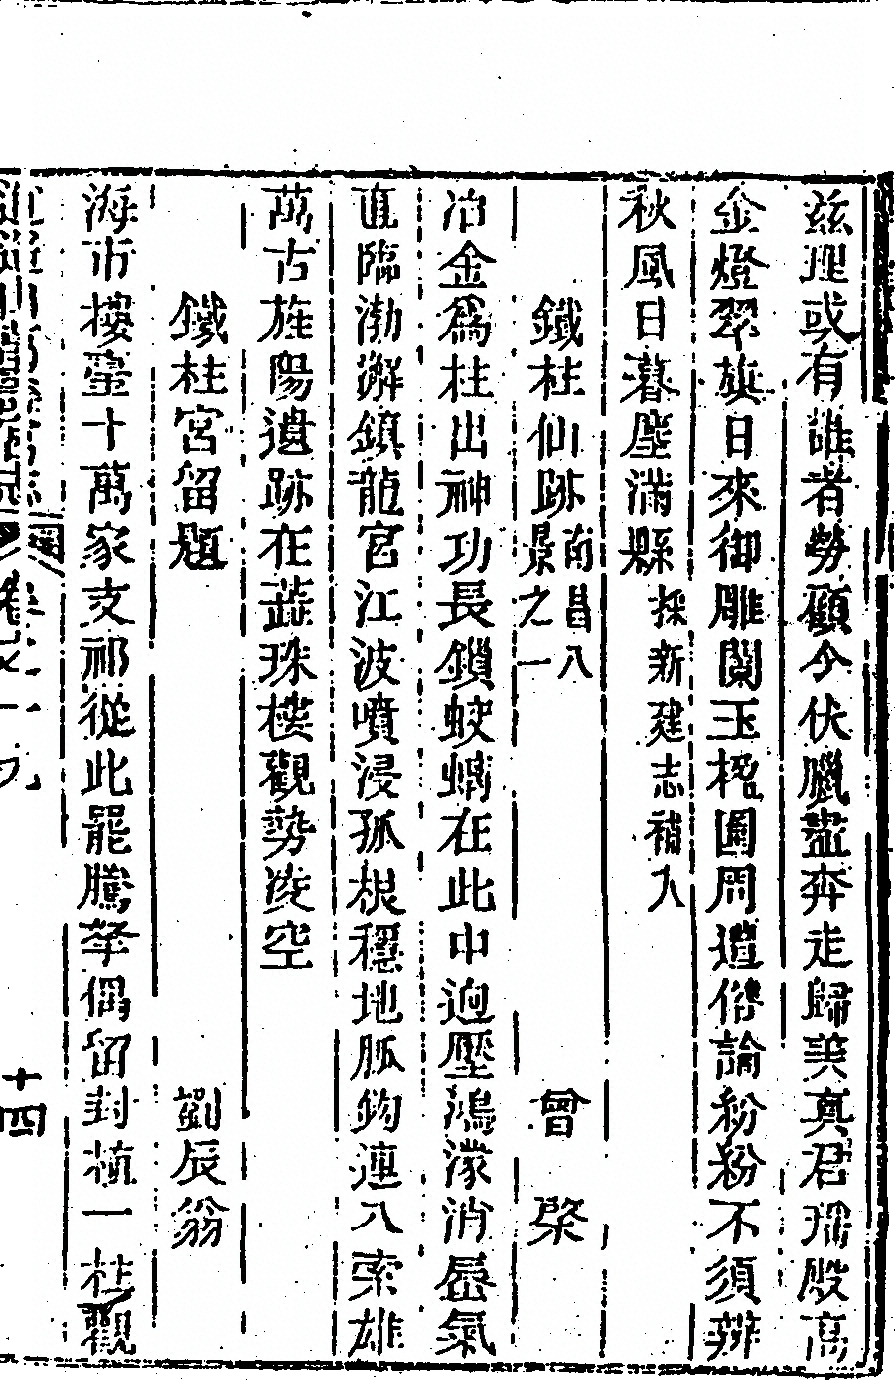 茲理或有誰者勞顧今伏臘盡奔走歸美真君瑤殿高
金燈翠旗日來御雕闌玉楹圍周遭俗論紛紛不須辨
秋風日暮塵滿縣採新建志補入
鐵柱仙跡南昌八景之一 曾棨
冶金爲柱出神功長鎖蛟螭在此中逈壓鴻濛消蜃氣
直臨渤澥鎮龍宮江波噴浸孤根穩地脈鉤連八索雄
萬古旌陽遺跡在蕊珠樓觀勢凌空
鐵柱宮留題 劉辰翁
海市樓臺十萬家支祁從此罷騰拏偶留封植一柱觀
卷之一九
十四